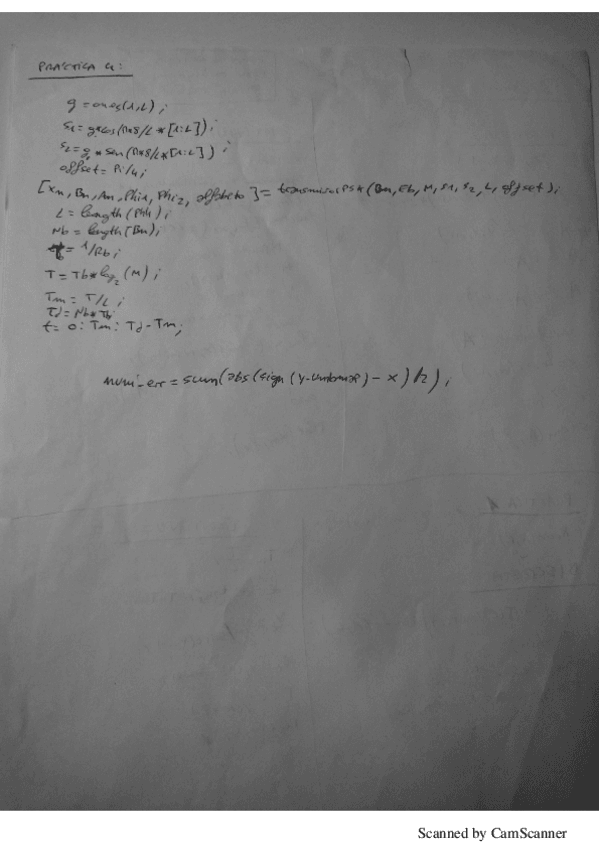 PRACTICA 4:
g = ones(1,L);
S1 = g*cos(π*8/L*[1:L]);
S2 = g*sen(π*8/L*[1:L]);
offset = Pi/4;
[Xn, Bn, An, Phi1, Phi2, alfabeto] = transmisorPSK(Bn, Eb, M, S1, S2, L, offset);
L = length(Phi1);
Nb = length(Bn);
= 1/Rb;
T = Tb*log2(M);
Tm = T/L;
Td = Nb*Tb
t = 0:Tm:Td-Tm;
num_err = sum(abs(sign(Y-umbral) - X)/2);
Scanned by CamScanner